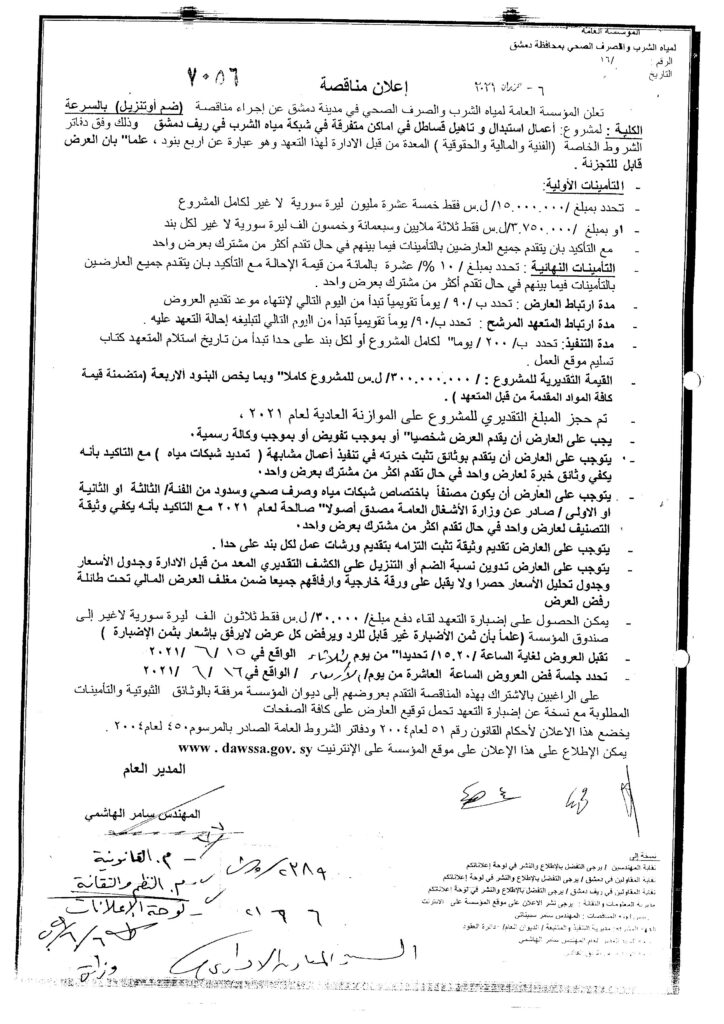 المؤسسة العامة
لمياه الشرب والصرف الصحي بمحافظة دمشق
الرقم : /١٦
التاريخ
٧٠٥٦
إعلان مناقصة
تعلن المؤسسة العامة لمياه الشرب والصرف الصحي في مدينة دمشق عن إجراء مناقصة (ضم أوتنزيل) بالسرعة
الكلية : لمشروع: أعمال استبدال و تاهيل قساطل في اماكن متفرقة في شبكة مياه الشرب في ريف دمشق وذلك وفق دفاتر
الشروط الخاصة (الفنية والمالية والحقوقية ) المعدة من قبل الادارة لهذا التعهد وهو عبارة عن اربع بنود ، علما" بان العرض
قابل للتجزئة .
- التأمينات الأولية:
- تحدد بمبلغ /١٥.٠٠٠.٠٠٠/ ل.س فقط خمسة عشرة مليون ليرة سورية لا غير لكامل المشروع
- او بمبلغ /٣.٧٥٠.٠٠٠/ل.س فقط ثلاثة ملايين وسبعمائة وخمسون الف ليرة سورية لا غير لكل بند
مع التأكيد بان يتقدم جميع العارضين بالتأمينات فيما بينهم في حال تقدم أكثر من مشترك بعرض واحد
- التأمينات النهائية : تحدد بمبلغ / ١٠ %/ عشرة بالمائة من قيمة الإحالة مع التأكيد بان يتقدم جميع العارضين
بالتأمينات فيما بينهم في حال تقدم أكثر من مشترك بعرض واحد .
- مدة ارتباط العارض : تحدد ب /٩٠ / يوماً تقويمياً تبدأ من اليوم التالي لإنتهاء موعد تقديم العروض
- مدة ارتباط المتعهد المرشح : تحدد ب/٩٠/ يوماً تقويمياً تبدأ من اليوم التالي لتبليغه إحالة التعهد عليه .
- مدة التنفيذ: تحدد ب/ ٢٠٠ / يوما" لكامل المشروع أو لكل بند على حدا تبدأ من تاريخ استلام المتعهد كتاب
تسليم موقع العمل .
- القيمة التقديرية للمشروع : / ٣٠٠.٠٠٠.٠٠٠/ ل.س للمشروع كاملا" وبما يخص البنود الاربعة (متضمنة قيمة
كافة المواد المقدمة من قبل المتعهد ) .
- تم حجز المبلغ التقديري للمشروع على الموازنة العادية لعام ٢٠٢١ ،
- يجب على العارض أن يقدم العرض شخصيا" أو بموجب تفويض أو بموجب وكالة رسمية٠
- يتوجب على العارض أن يتقدم بوثائق تثبت خبرته في تنفيذ أعمال مشابهة ( تمديد شبكات مياه ) مع التاكيد بأنه
يكفي وثائق خبرة لعارض واحد في حال تقدم اكثر من مشترك بعرض واحد٠
- يتوجب على العارض أن يكون مصنفاً باختصاص شبكات مياه وصرف صحي وسدود من الفئة/ الثالثة او الثانية
او الاولى / صادر عن وزارة الأشغال العامة مصدق أصولا" صالحة لعام ٢٠٢١ مع التاكيد بأنه يكفي وثيقة
التصنيف لعارض واحد في حال تقدم اكثر من مشترك بعرض واحد٠
- يتوجب على العارض تقديم وثيقة تثبت التزامه بتقديم ورشات عمل لكل بند على حدا .
- يتوجب على العارض تدوين نسبة الضم أو التنزيل على الكشف التقديري المعد من قبل الادارة وجدول الأسعار
وجدول تحليل الأسعار حصرا ولا يقبل على ورقة خارجية وارفاقهم جميعا ضمن مغلف العرض المالي تحت طائلة
رفض العرض
- يمكن الحصول على إضبارة التعهد لقاء دفع مبلغ/٣٠.٠٠٠/ ل.س فقط ثلاثون الف ليرة سورية لاغير إلى
صندوق المؤسسة (علماً بأن ثمن الأضبارة غير قابل للرد ويرفض كل عرض لايرفق بإشعار بثمن الإضبارة )
- تقبل العروض لغاية الساعة /١٥.٢٠/ تحديدا" من يوم ثلاثاء الواقع في ١٥ / ٦ /٢٠٢١
- تحدد جلسة فض العروض الساعة العاشرة من يوم/ الأربعاء / الواقع في ١٦ / ٦ / ٢٠٢١
على الراغبين بالاشتراك بهذه المناقصة التقدم بعروضهم إلى ديوان المؤسسة مرفقة بالوثائق الثبوتية والتأمينات
المطلوبة مع نسخة عن إضبارة التعهد تحمل توقيع العارض على كافة الصفحات
يخضع هذا الاعلان لأحكام القانون رقم ٥١ لعام ٢٠٠٤ ودفاتر الشروط العامة الصادر بالمرسوم٤٥٠ لعام٢٠٠٤
يمكن الإطلاع على هذا الإعلان على موقع المؤسسة على الإنترنيت www . dawssa.gov. sy
المدير العام
المهندس سامر الهاشمي
م. القانونية
م. النظم والتقانة
لوحة الإعلانات
٢٣٨٩
وزارة
نسخة إلى
نقابة المهندسين / يرجى التفضل بالإطلاع والنشر في لوحة إعلاناتكم
نقابة المقاولين في دمشق / يرجى التفضل بالإطلاع والنشر في لوحة إعلاناتكم
نقابة المقاولين في ريف دمشق / يرجى التفضل بالإطلاع والنشر في لوحة إعلاناتكم
مديرية المعلومات والتقانة : يرجى نشر الاعلان على موقع المؤسسة على الانترنت